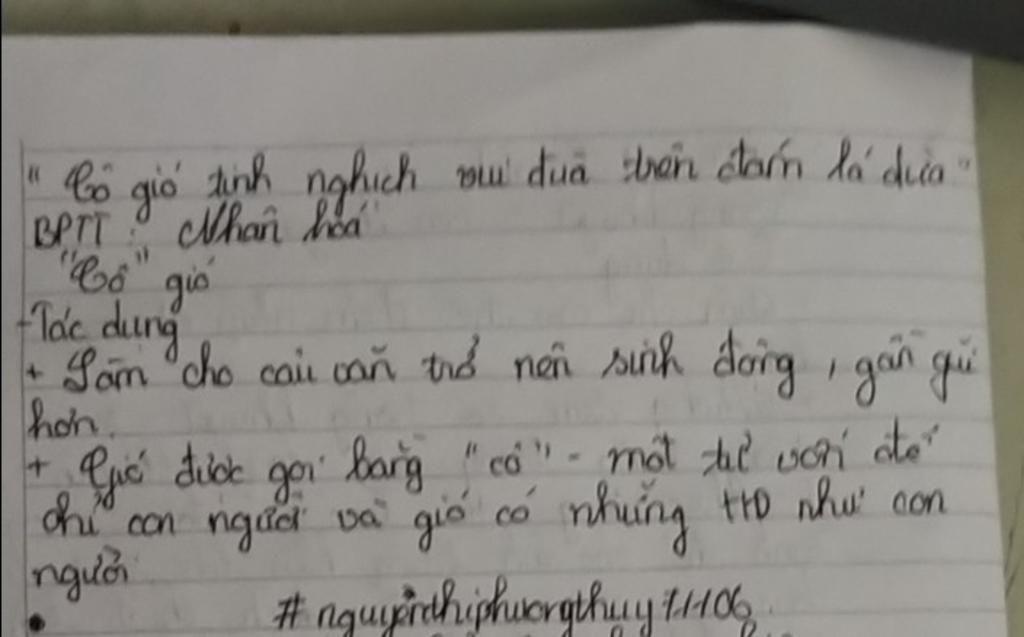 "Cô gió tinh nghịch vui đùa trên đám lá dừa"
BPTT: Nhân hoá
"Cô" gió
-Tác dụng
+ Làm cho câu văn trở nên sinh động, gần gũi
hơn.
+ Gió được gọi bằng "cô" - một từ vốn để
chỉ con người và gió có những HĐ như con
người